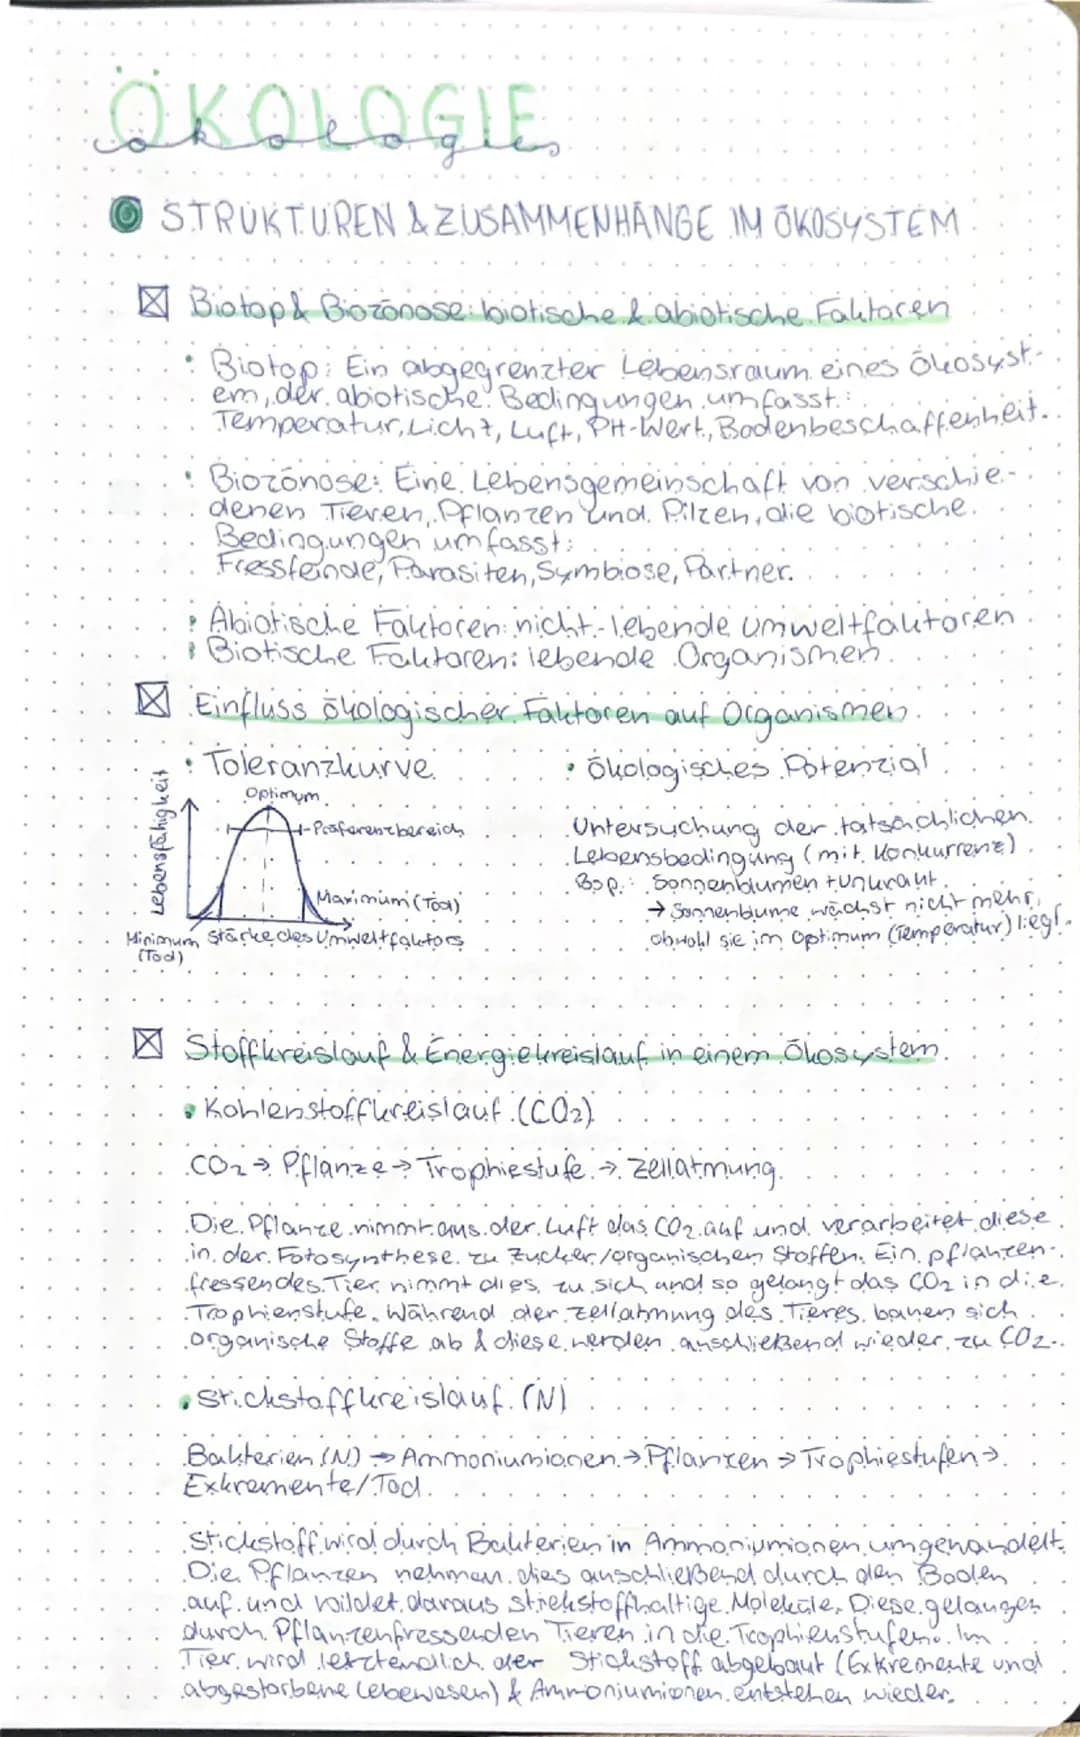 ÖKOLOGIE
ökologie
STRUKTUREN & ZUSAMMENHÄNGE IM ÖKOSYSTEM
Biotop & Biozönose: biotische & abiotische Faktoren
• Biotop: Ein abgegrenzter Lebensraum eines Ökosyst-
em, der abiotische Bedingungen umfasst:
Temperatur, Licht, Luft, PH-Wert, Bodenbeschaffenheit.
• Biozönose: Eine Lebensgemeinschaft von verschie-
denen Tieren, Pflanzen und Pilzen, die biotische
Bedingungen umfasst:
Fressfeinde, Parasiten, Symbiose, Partner.
• Abiotische Faktoren: nicht-lebende Umweltfaktoren
• Biotische Faktoren: lebende Organismen
Einfluss ökologischer Faktoren auf Organismen
• Toleranzkurve
Lebensfähigkeit
Optimum
Präferenzbereich
Maximum (Tod)
Minimum
(Tod)
Stärke des Umweltfaktors
• Ökologisches Potenzial
Untersuchung der tatsächlichen
Lebensbedingung (mit Konkurrenz)
Bsp.: Sonnenblumen + Unkraut
→ Sonnenblume wächst nicht mehr,
obwohl sie im Optimum (Temperatur) liegt.
Stoffkreislauf & Energiekreislauf in einem Ökosystem
• Kohlenstoffkreislauf (CO2)
CO2 → Pflanze → Trophiestufe → Zellatmung
Die Pflanze nimmt aus der Luft das CO2 auf und verarbeitet diese
in der Fotosynthese zu Zucker/organischen Stoffen. Ein pflanzen-
fressendes Tier nimmt dies zu sich und so gelangt das CO2 in die
Trophienstufe. Während der Zellatmung des Tieres bauen sich
organische Stoffe ab & diese werden anschließend wieder zu CO2.
• Stickstoffkreislauf (N)
Bakterien (N) → Ammoniumionen → Pflanzen → Trophiestufen →
Exkremente/Tod
Stickstoff wird durch Bakterien in Ammoniumionen umgewandelt.
Die Pflanzen nehmen dies anschließend durch den Boden
auf und bildet daraus stickstoffhaltige Moleküle. Diese gelangen
durch Pflanzenfressenden Tieren in die Trophienstufen. Im
Tier wird letztendlich der Stickstoff abgebaut (Exkremente und
abgestorbene Lebewesen) & Ammoniumionen entstehen wieder.